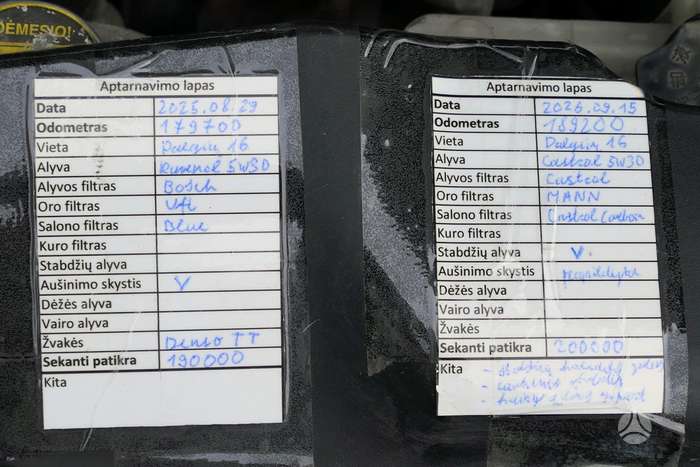 DĖMESIO!
Aptarnavimo lapas
Data 2025.08.29
Odometras 179700
Vieta Dalgiu 16
Alyva Ravenol 5W30
Alyvos filtras Bosch
Oro filtras Ufi
Salono filtras Blue
Kuro filtras
Stabdžių alyva
Aušinimo skystis V
Dėžės alyva
Vairo alyva
Žvakės Denso TT
Sekanti patikra 190000
Kita
Aptarnavimo lapas
Data 2026.09.15
Odometras 189200
Vieta Dalgiu 16
Alyva Castrol 5W30
Alyvos filtras Castrol
Oro filtras MANN
Salono filtras Castrol Carbon
Kuro filtras
Stabdžių alyva V
Aušinimo skystis
Dėžės alyva
Vairo alyva
Žvakės
Sekanti patikra 200000
Kita